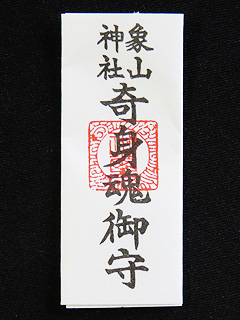 象山
神社
奇身魂御守